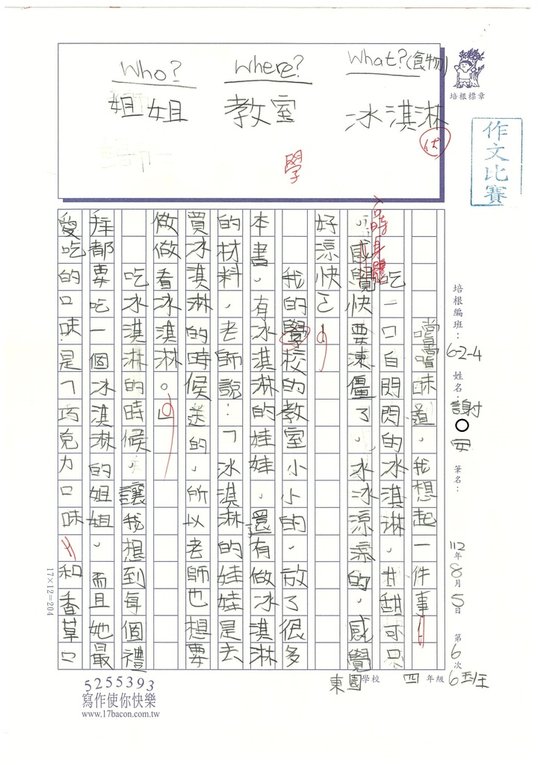 What?(食物)
冰淇淋
Where?
教室
Who?
姐姐
學
培根標章
作文比賽
培根編班：6-2-4 姓名：謝○安 筆名：
112年8月5日 第6次
東園學校 四年級6班
嚐嚐味道，我想起一件事
吃一口白閃閃的冰淇淋，甘甜可口
，感覺快要凍僵了，冰冰涼涼的，感覺
好涼快。
我的學校的教室小小的，放了很多
本書，有冰淇淋的娃娃，還有做冰淇淋
的材料，老師說：「冰淇淋的娃娃是去
買冰淇淋的時候送的，所以老師也想要
做做看冰淇淋。」
吃冰淇淋的時候，讓我想到每個禮
拜都要吃一個冰淇淋的姐姐，而且她最
愛吃的口味是「巧克力口味」和香草口
17×12=204
5255393
寫作使你快樂
www.17bacon.com.tw